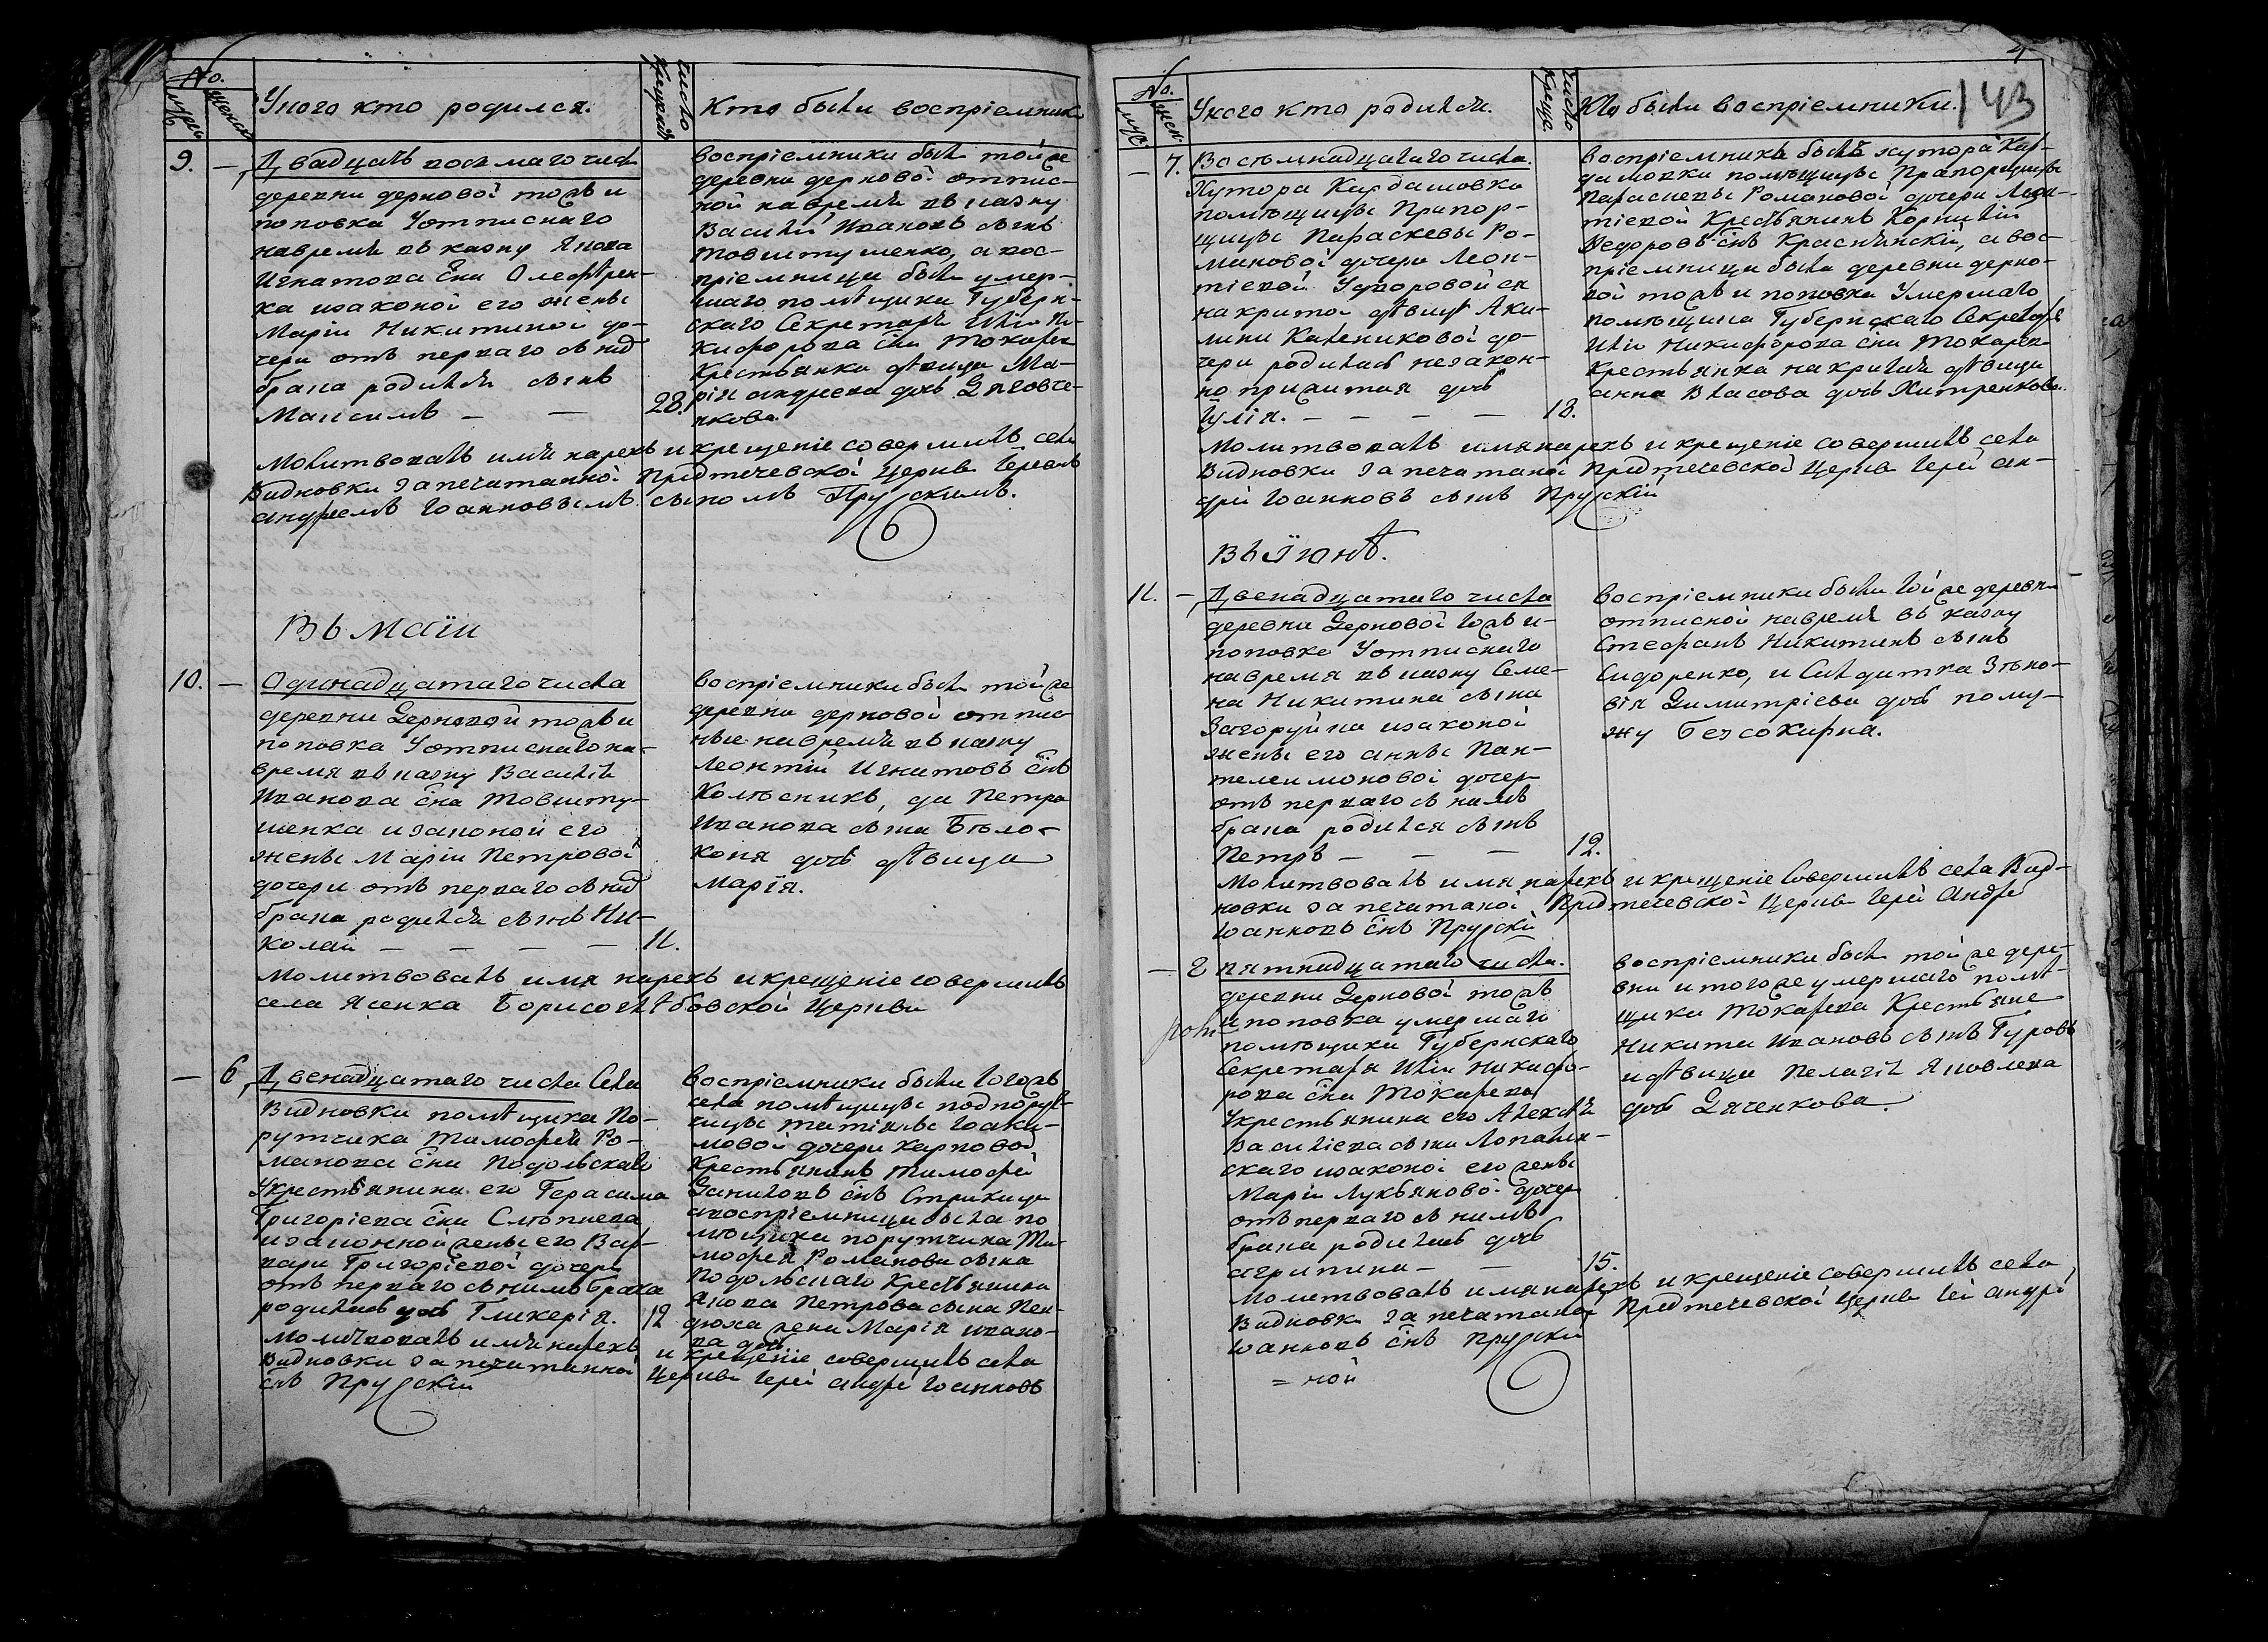 No.
мужеск
женск
Укого кто родился.
число
крещенія
Кто были воспріемники
9. — Двадцать восьмаго числа
деревни дерновой тожъ и
поповка Уотписнаго
навремя въ казну Якова
Игнатова сна Олефірен-
ка изаконой его жены
Маріи Никитиной до-
чери отъ перваго съ нимъ
брака родился сынъ
Максимъ — — 28.
воспріемники были тойже
деревни дерновой отпис-
ной навремя въ казну
Василій Ивановъ сынъ
Товштушенко, а вос-
пріемница была умер-
шаго помѣщика Губерн-
скаго Секретаря Иліи Ни-
кифорова сна Токарева
Крестьянка дѣвица Ма-
рія андреева дочь Дяговче-
нкова.
Молитвовалъ имя нарекъ и крещеніе совершилъ села
Видновки запечатанной Предтечевской Церкви Іереемъ
андреемъ Іоанновымъ сыномъ Прускимъ.
Въ Маіи
10. — Одинадцатаго числа
деревни Дерновой тожъ и
поповка Уотписнаго на-
время въ казну Василія
Иванова сна Товшту-
шенка изаконой его
жены Маріи Петровой
дочери отъ перваго съ нимъ
брака родился сынъ Ни-
колай — — — — 11.
воспріемники были тойже
деревни дерновой отпис-
ные навремя въ казну
Леонтій Игнатовъ снъ
Колѣсникъ, да Петра
Иванова сына Бѣло-
коня дочь дѣвица
Марія.
Молитвовалъ имя нарекъ и крещеніе совершилъ
села Ясенка Борисоглѣбовской Церкви
— 6. Двенадцатаго числа Села
Видновки помѣщика По-
рутчика Тимофея Ро-
манова сна Подольскаго
Укрестьянина его Герасима
Григоріева сна Слѣпнева
изаконной жены его Вар-
вари Григоріевой дочери
отъ перваго съ нимъ брака
родилась дочь Гликерія. 12
воспріемники были тогожъ
села помѣщицы подпорут-
чицы Татіяны Іоаки-
мовой дочери Карповой
Крестьянинъ Тимофей
Даниловъ снъ Стрижица
авоспріемница была по
мѣщика порутчика Ти-
мофея Романова сына
Подольскаго Крестьянина
Якова Петрова сына Пен-
дюха жена Марія ивано-
ва дочь
Молитвовалъ имя нарекъ и крещеніе совершилъ села
Видновки запечатанной Церкви Іерей андрей Іоанновъ
снъ Прускій
143
No.
муж
женск
Укого кто родился.
число
креще.
Кто были воспріемники.
— 7. Восѣмнадцатаго числа.
Хутора Кардашовки
помѣщицы Прапор-
щицы Параскевы Ро-
мановой дочери Леон-
тіевой Удворовой ея
накритой дѣвицы Аки-
лини Калениковой до-
чери родилась незакон-
но прижитая дочь
Іулія. — — — — 18.
воспріемникъ былъ хутора Кар-
дашовки помѣщицы Прапорщицы
Параскевы Романовой дочери Леон-
тіевой Крестьянинъ Корнилій
Ѳедоровъ снъ Краснянскій, а вос-
пріемница была деревни дерно-
вой тожъ и поповка Умершаго
помѣщика Губернскаго Секретаря
Иліи Никифорова сна Токарева
крестьянка накритая дѣвица
анна Власова дочь Хитренкова.
Молитвовалъ имя нарекъ и крещеніе совершилъ села
Видновки запечатаной Предтечевской Церкви Іерей ан-
дрей Іоанновъ сынъ Прускій
Въ Іюнѣ.
11. — Двенадцатаго числа
деревни Дерновой тожъ и-
поповке Уотписнаго
навремя въ казну Семе-
на Никитина сына
Загоруйка изаконой
жены его анны Пан-
телеимоновой дочери
отъ перваго съ нимъ
брака родился сынъ
Петръ — — — 12.
воспріемники были тойже деревни
отписной навремя въ казну
Стефанъ Никитинъ сынъ
Сидоренко, и Солдатка Зѣно-
вія Димитріева дочь пому-
жу Безсокирна.
Молитвовалъ имя нарекъ и крещеніе совершилъ села Вид-
новки запечатаной Предтечевской Церкви Іерей Андрей
Іоанновъ снъ Прускій
— 8 пятнадцатаго числа.
деревни Дерновой тожъ
ипоповка умершаго
помѣщика Губернскаго
Секретаря Иліи Никифо-
рова сна Токарева
Укрестьянина его Алексѣя
Васильева сына Лопатин-
скаго изаконой его жены
Маріи Лукьяновой дочери
отъ перваго съ нимъ
брака родилась дочь
агрипина — — 15.
воспріемники были тойже дере-
вни и тогоже умершаго помѣ-
щика Токарева Крестьяне
Никита Ивановъ сынъ Гуровъ
и дѣвица Пелагія Яковлева
дочь Дяченкова.
Молитвовалъ имя нарекъ и крещеніе совершилъ села
Видновки запечатаной Предтечевской Церкви Іерей андрей
Іоанновъ снъ Прускій
= ной